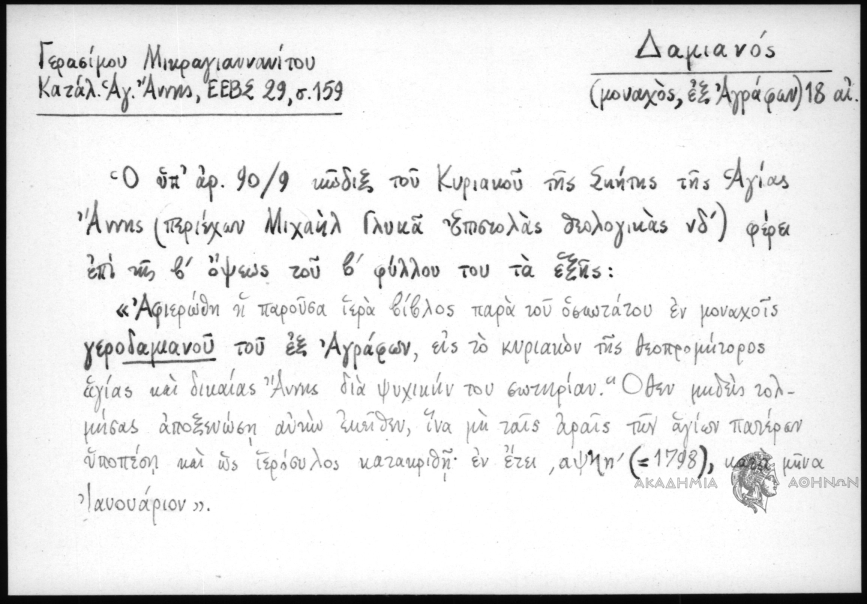 Γερασίμου Μικραγιαννανίτου
Κατάλ. Ἁγ. Ἄννης, ΕΕΒΣ 29, σ. 159
Δαμιανός
(μοναχὸς, ἐξ Ἀγράφων) 18 αἰ.
Ὁ ὑπ' ἀρ. 90/9 κῶδιξ τοῦ Κυριακοῦ τῆς Σκήτης τῆς Ἁγίας
Ἄννης (περιέχων Μιχαὴλ Γλυκᾶ ἐπιστολὰς θεολογικὰς νδ') φέρει
ἐπὶ τῆς β' ὄψεως τοῦ β' φύλλου του τὰ ἑξῆς:
«Ἀφιερώθη ἡ παροῦσα ἱερὰ βίβλος παρὰ τοῦ ὁσιωτάτου ἐν μοναχοῖς
γεροδαμιανοῦ τοῦ ἐξ Ἀγράφων, εἰς τὸ κυριακὸν τῆς θεοπρομήτορος
ἁγίας καὶ δικαίας Ἄννης διὰ ψυχικήν του σωτηρίαν." Ὅθεν μηδεὶς τολ-
μήσας ἀποξενώσῃ αὐτὴν ἐκεῖθεν, ἵνα μὴ ταῖς ἀραῖς τῶν ἁγίων πατέρων
ὑποπέσῃ καὶ ὡς ἱερόσυλος κατακριθῇ· ἐν ἔτει ,αψϟη' (=1798), κατὰ μῆνα
Ἰανουάριον».
ΑΚΑΔΗΜΙΑ ΑΘΗΝΩΝ